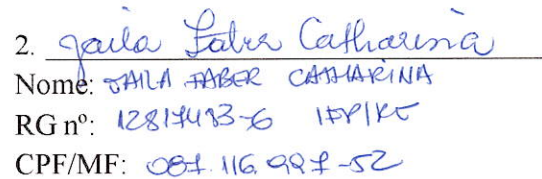 2. Jaila Faber Catharina
Nome: JAILA FABER CATHARINA
RG nº: 12817493-6 IFP/RJ
CPF/MF: 087.116.997-52